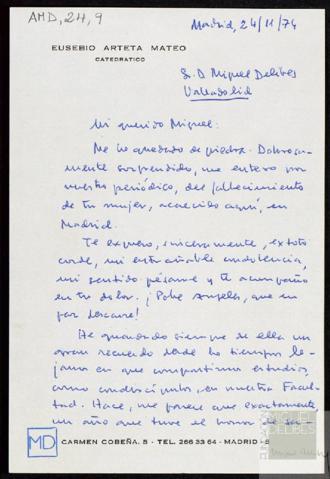 AMD, 24, 9
Madrid, 24/11/74
EUSEBIO ARTETA MATEO
CATEDRATICO
S. D Miguel Delibes
Valladolid
Mi querido Miguel:
Me he quedado de piedra. Dolorosa-
mente sorprendido, me entero por
nuestro periódico, del fallecimiento
de tu mujer, acaecido aquí, en
Madrid.
Te expreso, sinceramente, ex toto
corde, mi entrañable condolencia,
mi sentido pésame y te acompaño
en tu dolor. ¡Pobre Angeles, que en
paz descanse!
He guardado siempre de ella un
gran recuerdo desde los tiempos le-
janos en que compartimos estudios,
como condiscípulos, en nuestra Facul-
tad. Hace, me parece que exactamente
un año que tuve el honor de
MD
CARMEN COBEÑA, 5 - TEL. 266 33 64 - MADRID-5
MIGUEL
DELIBES